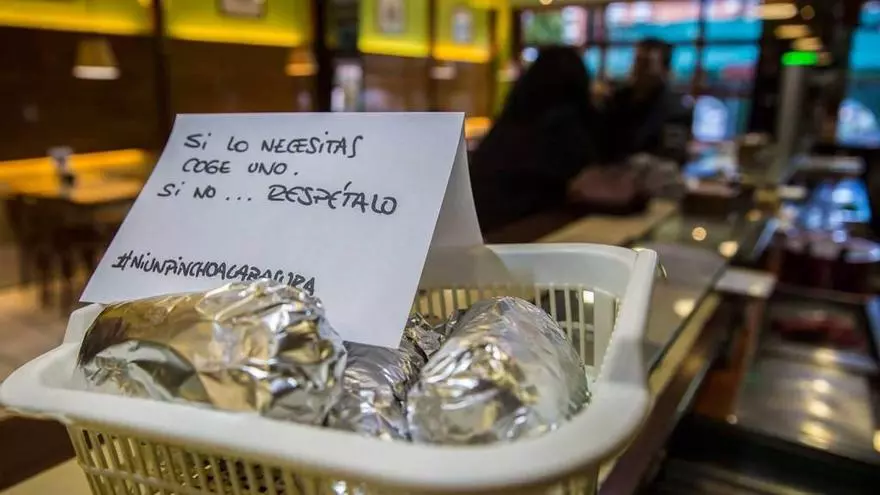 SI LO NECESITAS
COGE UNO.
SI NO ... RESPÉTALO
#NIUNPINCHOALABASURA